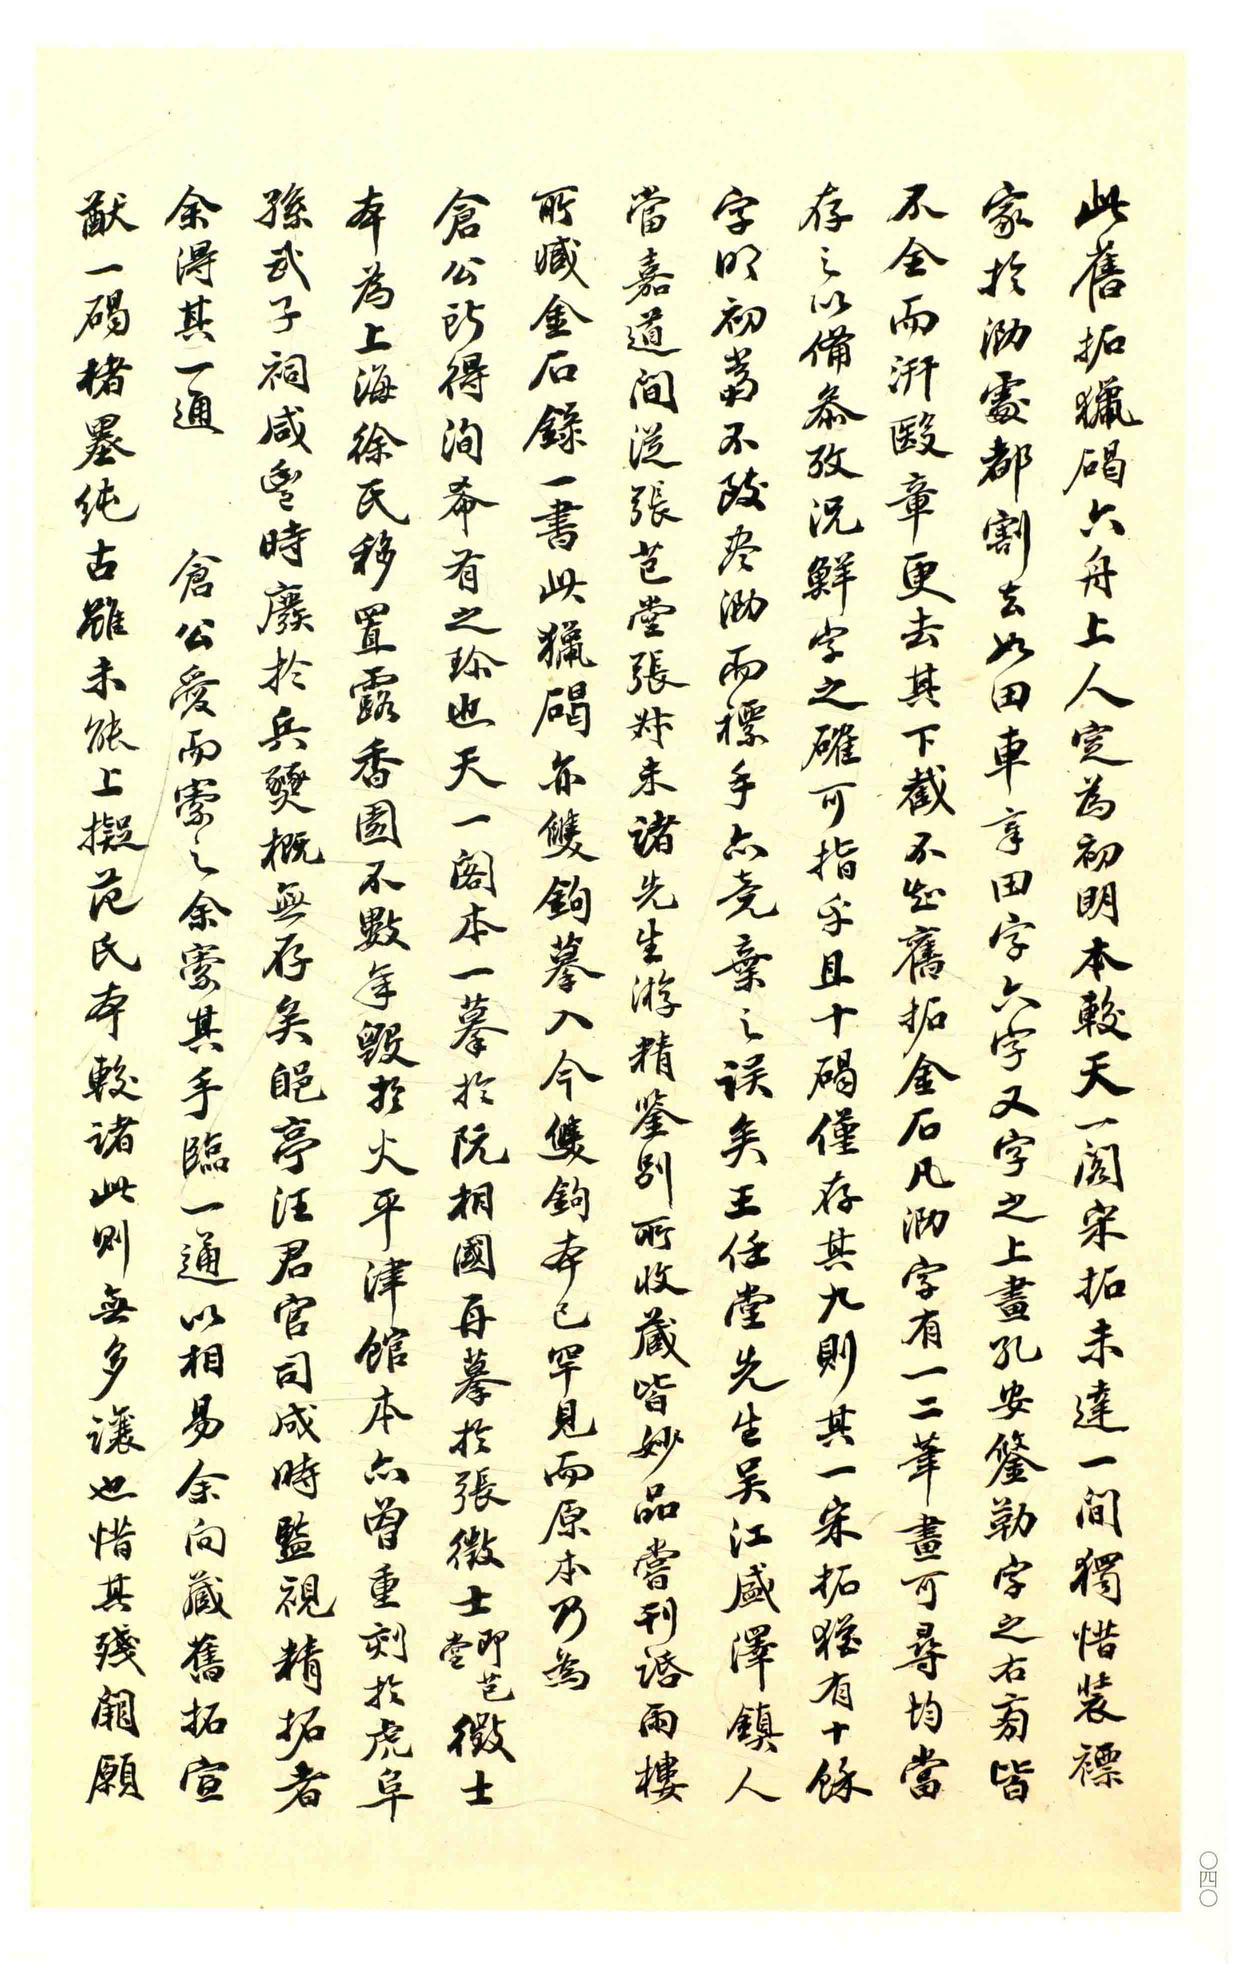 此舊拓獵碣六舟上人定為初明本較天一閣宋拓未達一間獨惜裝褾
家於泐處都割去如田車章田字六字又字之上畫孔安鋚勒字之右旁皆
不全而汧毆章更去其下截不知舊拓金石凡泐字有一二筆畫可尋均當
存之以備叅攷況鮮字之確可指乎且十碣僅存其九則其一宋拓猶有十餘
字明初當不致盡泐而褾手亦竟棄之誤矣王任堂先生吴江盛澤鎮人
當嘉道間從張芑堂張叔未諸先生游精鑒别所收藏皆妙品嘗刊話雨樓
所臧金石錄一書此獵碣亦雙鉤摹入今雙鉤本已罕見而原本乃為
倉公所得洵希有之珍也天一閣本一摹於阮相國再摹於張徵士即芑堂徵士
本為上海徐氏移置露香園不數年毀於火平津館本亦曾重刻於虎阜
孫武子祠咸豐時廢於兵燹概無存矣郋亭汪君官司成時監視精拓者
余得其一通　倉公愛而索之余索其手臨一通以相易余向藏舊拓宣
猷一碣楮墨純古雖未能上擬范氏本較諸此則無多讓也惜其殘闕願
〇四〇